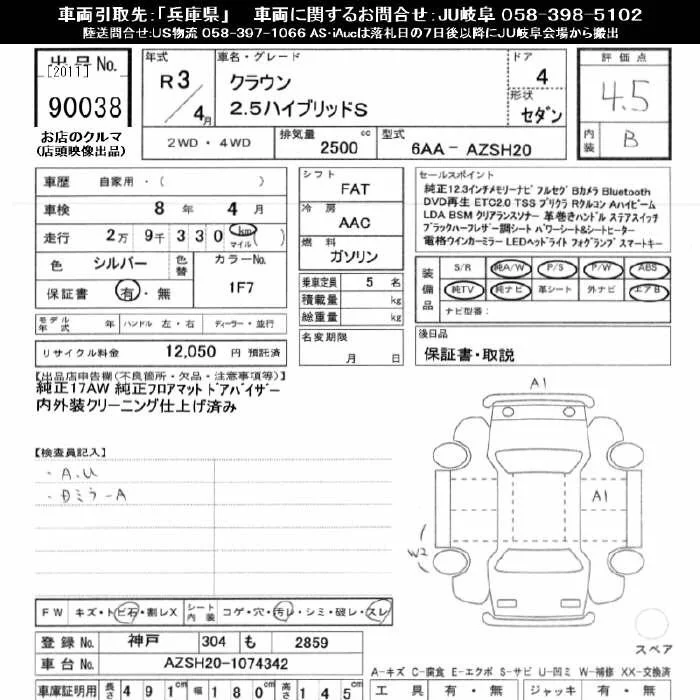 車両引取先:「兵庫県」 車両に関するお問合せ:JU岐阜 058-398-5102
陸送問合せ:US物流 058-397-1066 AS・iAucは落札日の7日後以降にJU岐阜会場から搬出
出品No.
[2011]
90038
お店のクルマ
(店頭映像出品)
年式
R3/4月
車名・グレード
クラウン
2.5ハイブリッドS
ドア
4
形状
セダン
2WD・4WD
排気量 2500 cc
型式 6AA-AZSH20
評価点
4.5
内装 B
車歴 自家用・( )
車検 8年 4月
走行 2万 9千 330 km マイル ( )
色 シルバー 色替 カラーNo. 1F7
保証書 有・無
モデル年式 年 ハンドル 左・右 ディーラー・並行
リサイクル料金 12,050 円 預託済
シフト
FAT
冷房
AAC
燃料
ガソリン
乗車定員 5 名
積載量 kg
総重量 kg
名変期限
月 日
セールスポイント
純正12.3インチメモリーナビ フルセグ Bカメラ Bluetooth
DVD再生 ETC2.0 TSS プリクラ Rクルコン Aハイビーム
LDA BSM クリアランスソナー 革巻きハンドル ステアスイッチ
ブラックハーフレザー調シート パワーシート&シートヒーター
電格ウインカーミラー LEDヘッドライト フォグランプ スマートキー
装備品
S/R 純A/W P/S P/W ABS
純TV 純ナビ 革シート 外ナビ エアB
ナビ型番:
後日品
保証書・取説
【出品店申告欄(不良箇所・欠品・注意事項等)】
純正17AW 純正フロアマット ドアバイザー
内外装クリーニング仕上げ済み
【検査員記入】
・A.U
ミラーA
A1
A1
W2
スペア
FW キズ・トビ石・割レX
シート内装 コゲ・穴・汚レ・シミ・破レ・スレ
登録No. 神戸 304 も 2859
車台No. AZSH20-1074342
A-キズ C-腐食 E-エクボ S-サビ U-凹ミ W-補修 XX-交換済
車庫証明用 長さ 491cm 幅 180cm 高さ 145cm
工具 有・無 ジャッキ 有・無